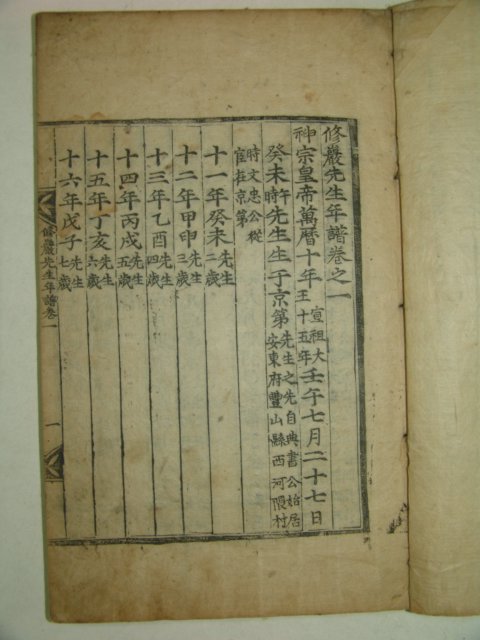 修巖先生年譜卷之一
神宗皇帝萬曆十年宣祖大王十五年壬午七月二十七日
癸未午時先生生于京第先生之先自典書公始居安東府豐山縣西河隈村
時文忠公從宦在京第
十一年癸未先生二歲
十二年甲申先生三歲
十三年乙酉先生四歲
十四年丙戌先生五歲
十五年丁亥先生六歲
十六年戊子先生七歲
修巖先生年譜卷一
一